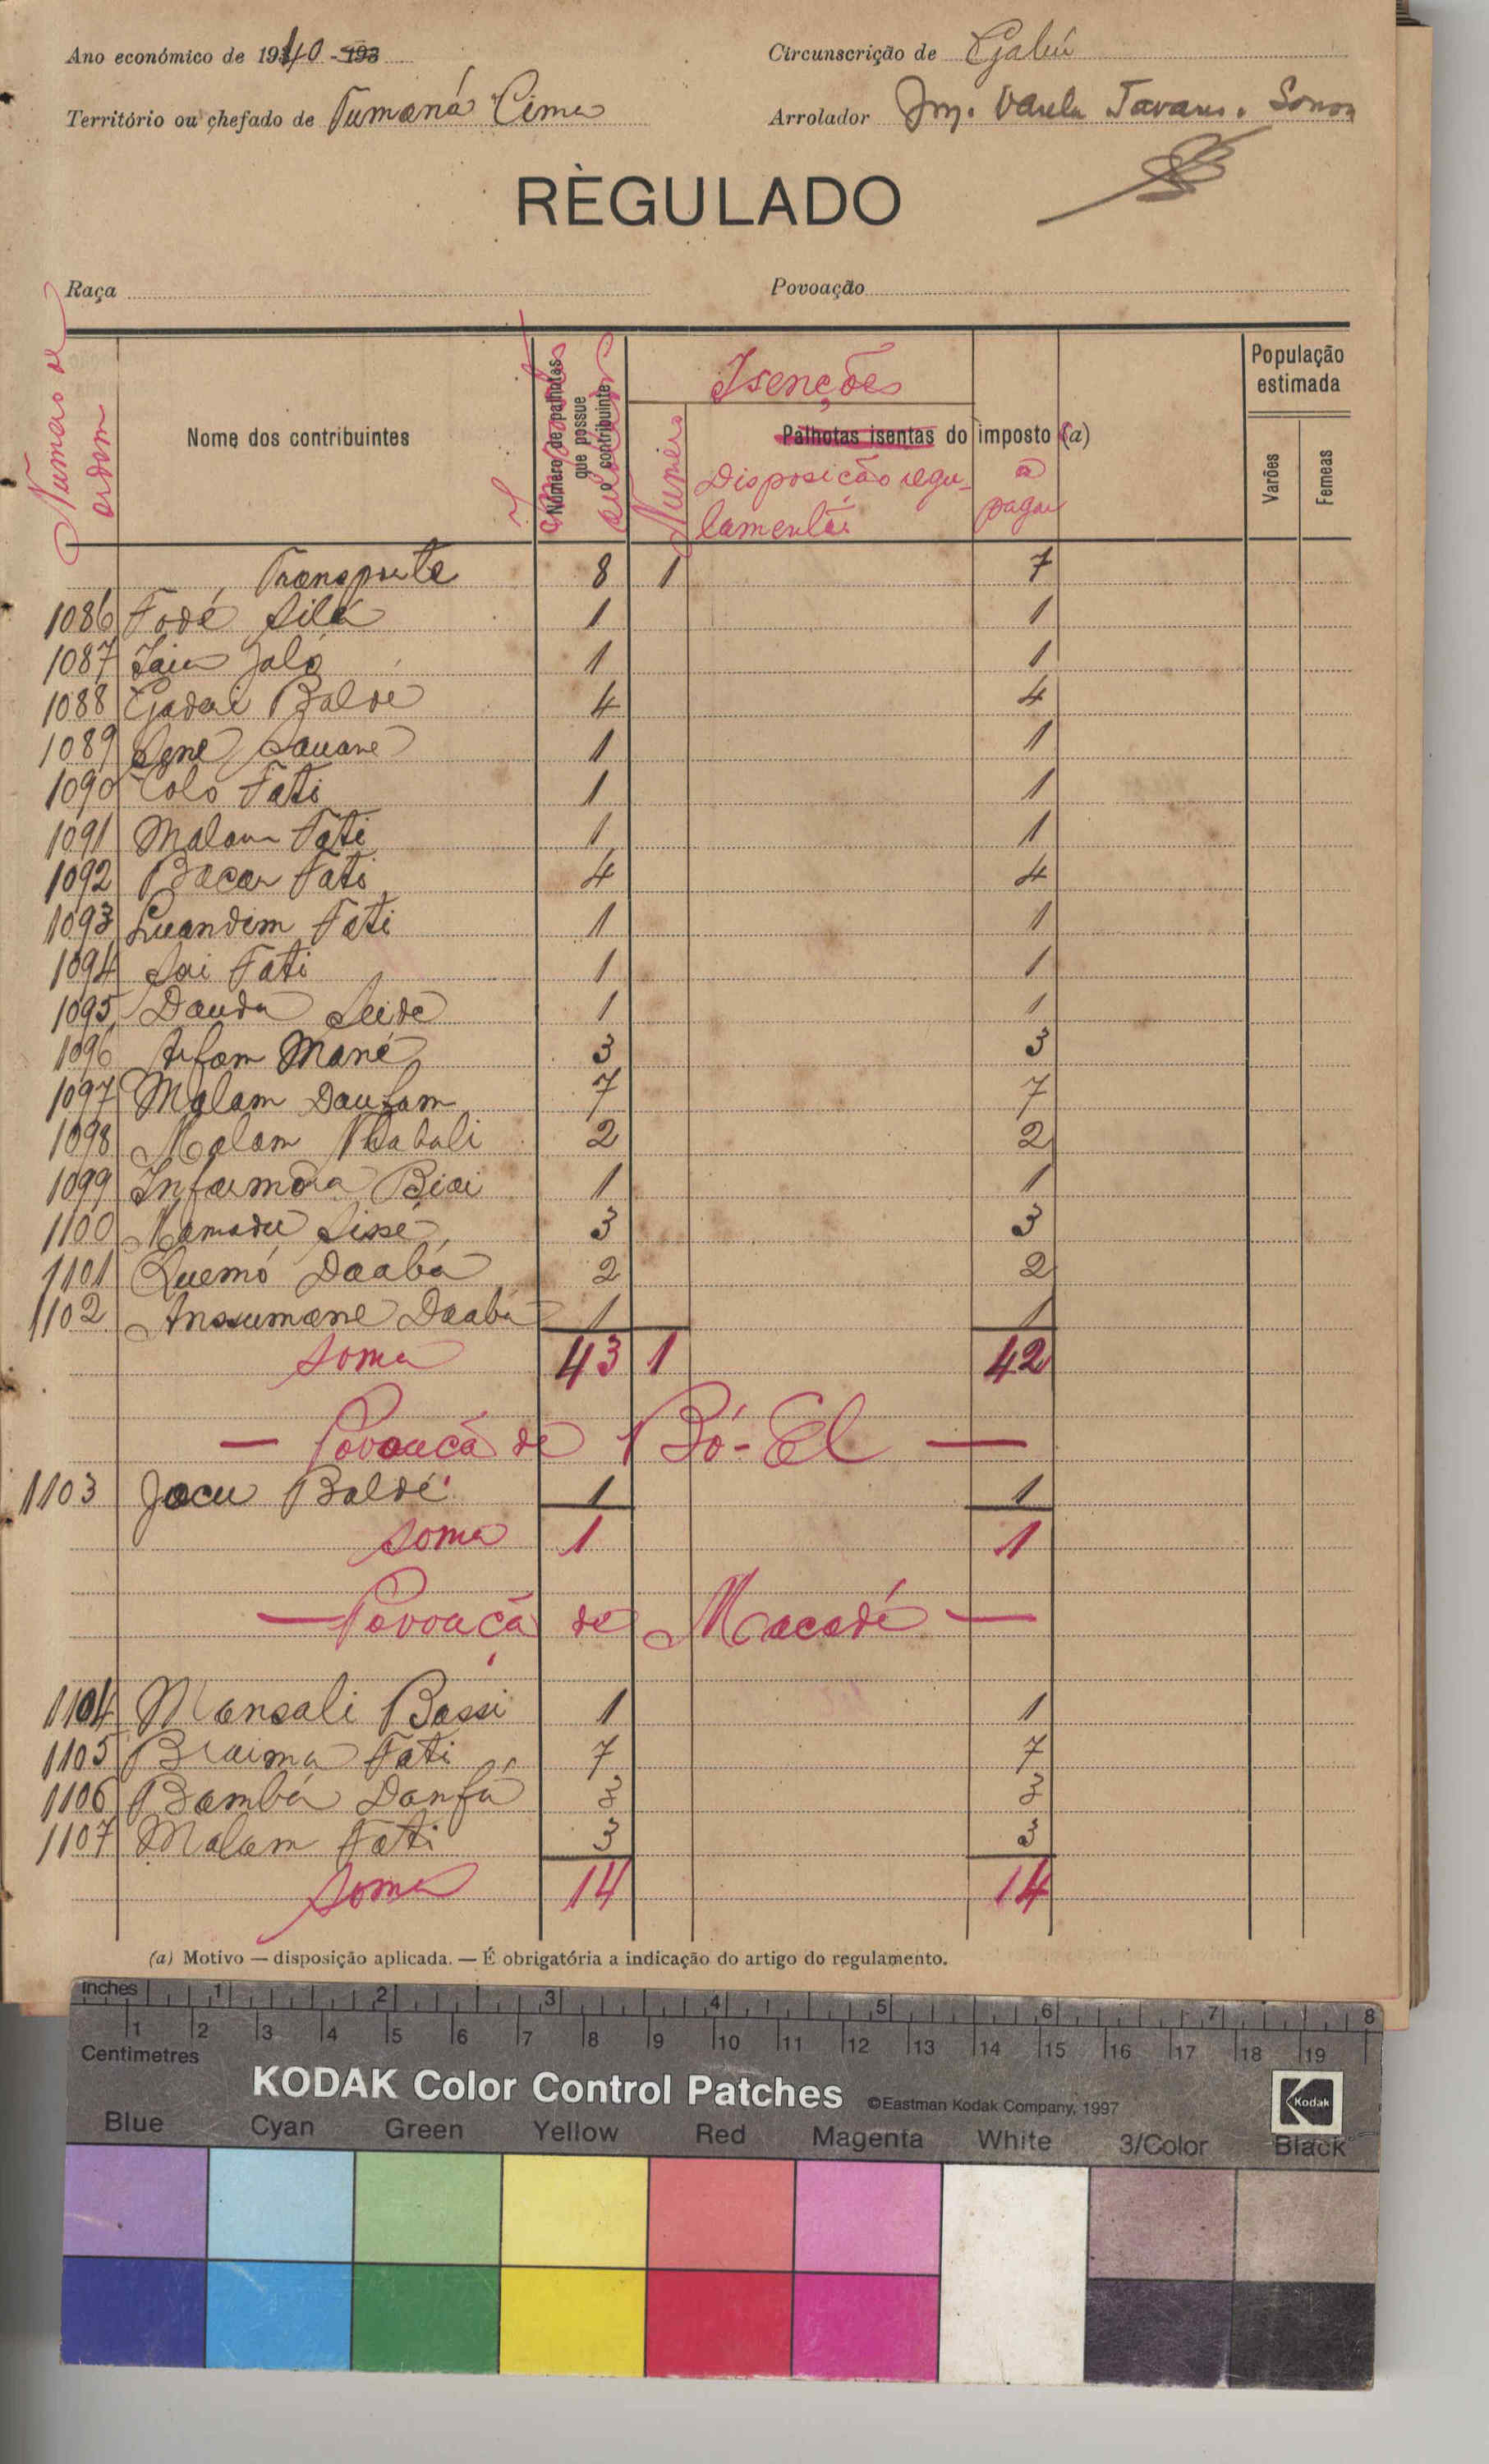 Ano económico de 1940 - 193
Circunscrição de Gabú
Território ou chefado de Tumaná Cima
Arrolador Tavares
RÈGULADO
Raça
Povoação
Numero de ordem
Nome dos contribuintes
Número de palhotas que possue o contribuinte
Isenções
Numero
Palhotas isentas do imposto (a)
Disposicão regulamentar
a pagar
População estimada
Varões
Femeas
Transporte 8 1 7
1086 Fodé Silá 1 1
1087 Jaló 1 1
1088 Baldé 4 4
1089 Sene Sauane 1 1
1090 Coló Fati 1 1
1091 Malam Fati 1 1
1092 Bacar Fati 4 4
1093 Luandim Fati 1 1
1094 Sai Fati 1 1
1095 Dauda Seide 1 1
1096 Arfam Mané 3 3
1097 Malam 7 7
1098 Malam 2 2
1099 Infamora Biai 1 1
1100 Mamadu Sissé 3 3
1101 Quemó Daabá 2 2
1102 Anssumane Daabá 1 1
Soma 43 1 42
— Povoacã de Bó-El —
1103 Jacu Baldé 1 1
Soma 1 1
— Povoaçã de Macadé —
1104 Mansali Bassi 1 1
1105 Braima Fati 7 7
1106 Bambá Danfá 3 3
1107 Malam Fati 3 3
Soma 14 14
(a) Motivo — disposição aplicada. — É obrigatória a indicação do artigo do regulamento.
Inches 1 2 3 4 5 6 7 8
1 2 3 4 5 6 7 8 9 10 11 12 13 14 15 16 17 18 19
Centimetres
KODAK Color Control Patches ©Eastman Kodak Company, 1997 Kodak
Blue Cyan Green Yellow Red Magenta White 3/Color Black